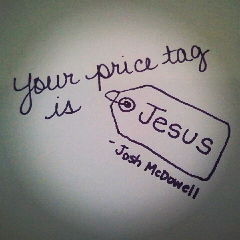 Your price tag
is Jesus
- Josh McDowell